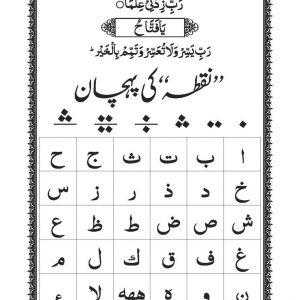 رَبِّ زِدْنِیْ عِلْمًا
یَا فَتَّاحُ
رَبِّ یَسِّرْ وَلَا تُعَسِّرْ وَتَمِّمْ بِالْخَیْرِ
”نقطہ“ کی پہچان
ا ب ت ث ج ح
خ د ذ ر ز س
ش ص ض ط ظ ع
غ ف ق ك ل م
ن و ه ھ لا ء